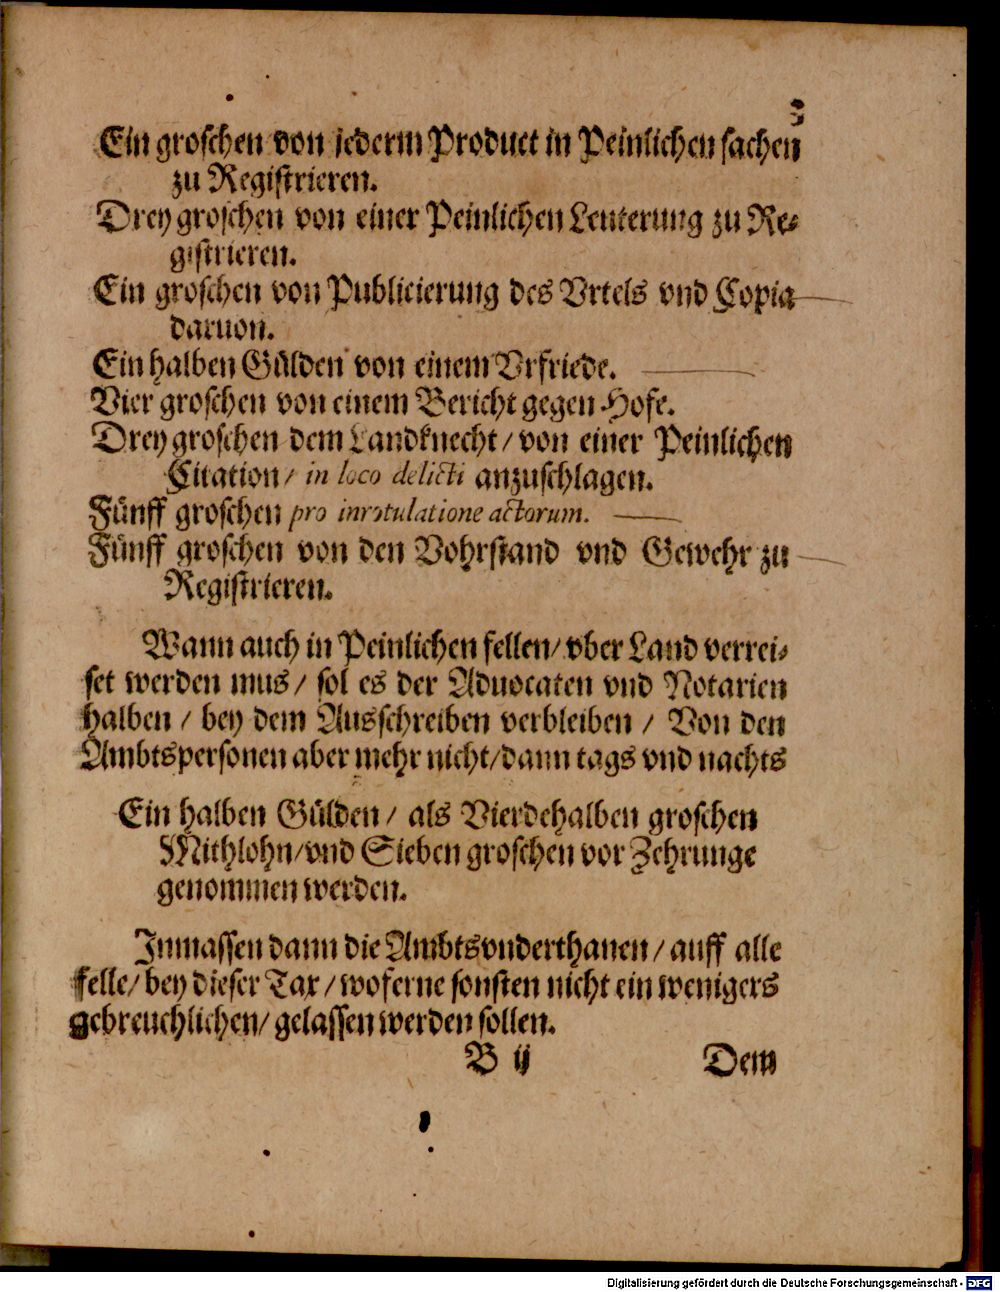 Ein groschen von jederm Product in Peinlichen sachen
zu Registrieren.
Drey groschen von einer Peinlichen Leuterung zu Re-
gistrieren.
Ein groschen von Publicierung des Vrtels vnd Copia
daruon.
Ein halben Gülden von einem Vrfriede.
Vier groschen von einem Bericht gegen Hofe.
Drey groschen dem Landknecht / von einer Peinlichen
Citation / in loco delicti anzuschlagen.
Fünff groschen pro inrotulatione actorum.
Fünff groschen von den Vohrstand vnd Gewehr zu
Registrieren.
Wann auch in Peinlichen fellen / vber Land verrei-
set werden mus / sol es der Aduocaten vnd Notarien
halben / bey dem Ausschreiben verbleiben / Von den
Ambtspersonen aber mehr nicht / dann tags vnd nachts
Ein halben Gülden / als Vierdehalben groschen
Mithlohn / vnd Sieben groschen vor Zehrunge
genommen werden.
Inmassen dann die Ambtsvnderthanen / auff alle
felle / bey dieser Tax / woferne sonsten nicht ein wenigers
gebreuchlichen / gelassen werden sollen.
B ij Dem
Digitalisierung gefördert durch die Deutsche Forschungsgemeinschaft - DFG